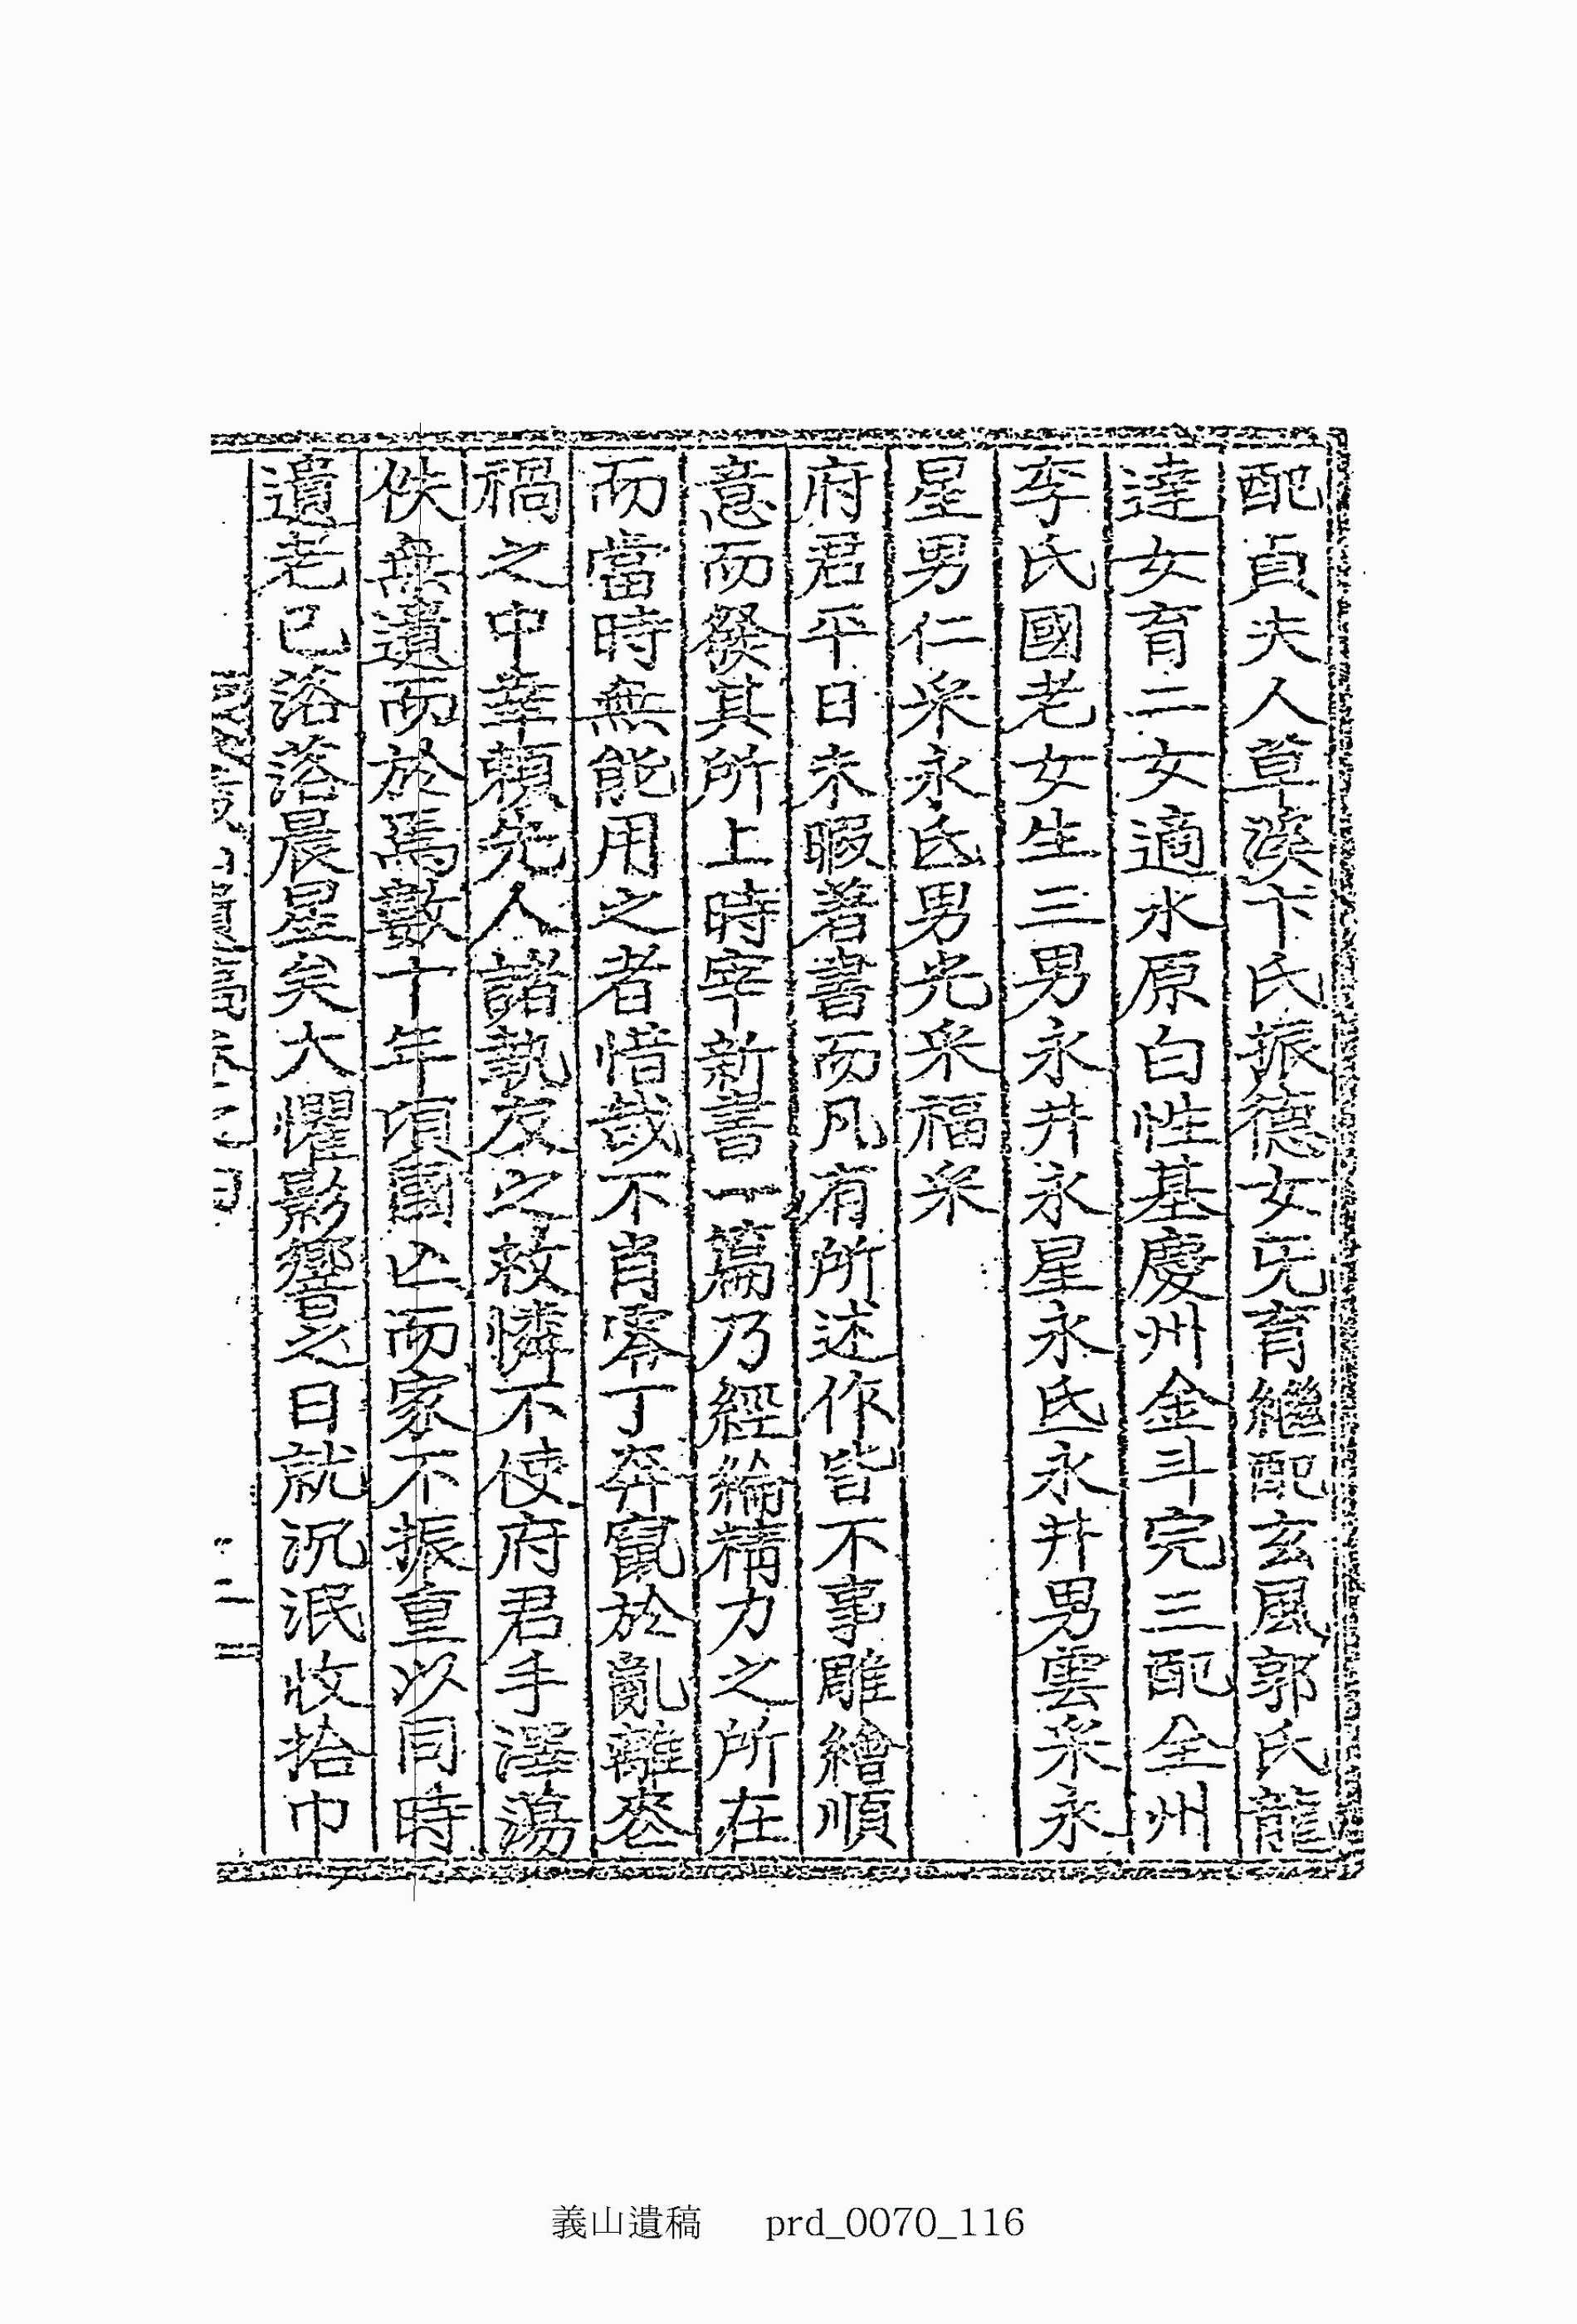 配貞夫人草溪卞氏振德女旡育繼配玄風郭氏龍
達女育二女適水原白性基慶州金斗完三配全州
李氏國老女生三男永井永星永氐永井男雲采永
星男仁采永氐男光采福采
府君平日未暇著書而凡有所述作皆不事雕繪順
意而發其所上時宰新書一篇乃經綸精力之所在
而當時無能用之者惜哉不肖零丁奔竄於亂離
禍之中幸賴先人諸執友之救憐不使府君手澤蕩
佚無遺而於焉數十年頃國亡而家不振重以同時
遺老已落落晨星矣大懼影響之日就沉泯收拾巾
二
義山遺稿 prd_0070_116